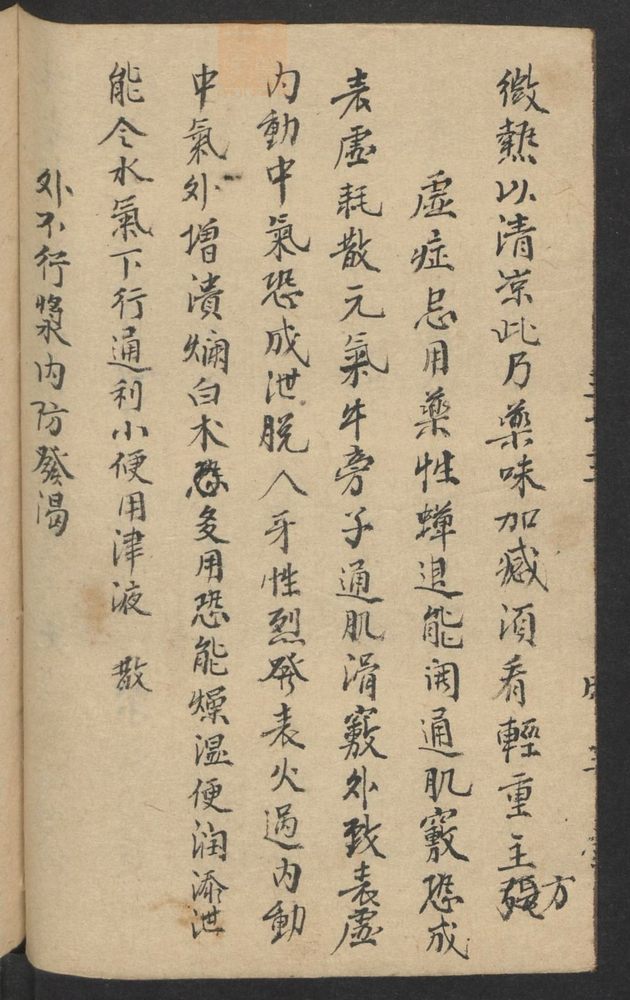 微熱以清涼此乃藥味加减須看輕重主方
虛症忌用藥性蟬退能開通肌竅恐成
表虛耗散元氣牛旁子通肌滑竅外致表虛
內動中氣恐成泄脫人牙性烈發表火過內動
中氣外增潰爛白木多用恐能燥濕便潤添泄
能令水氣下行通利小便用津液 散
外不行漿內防發渴